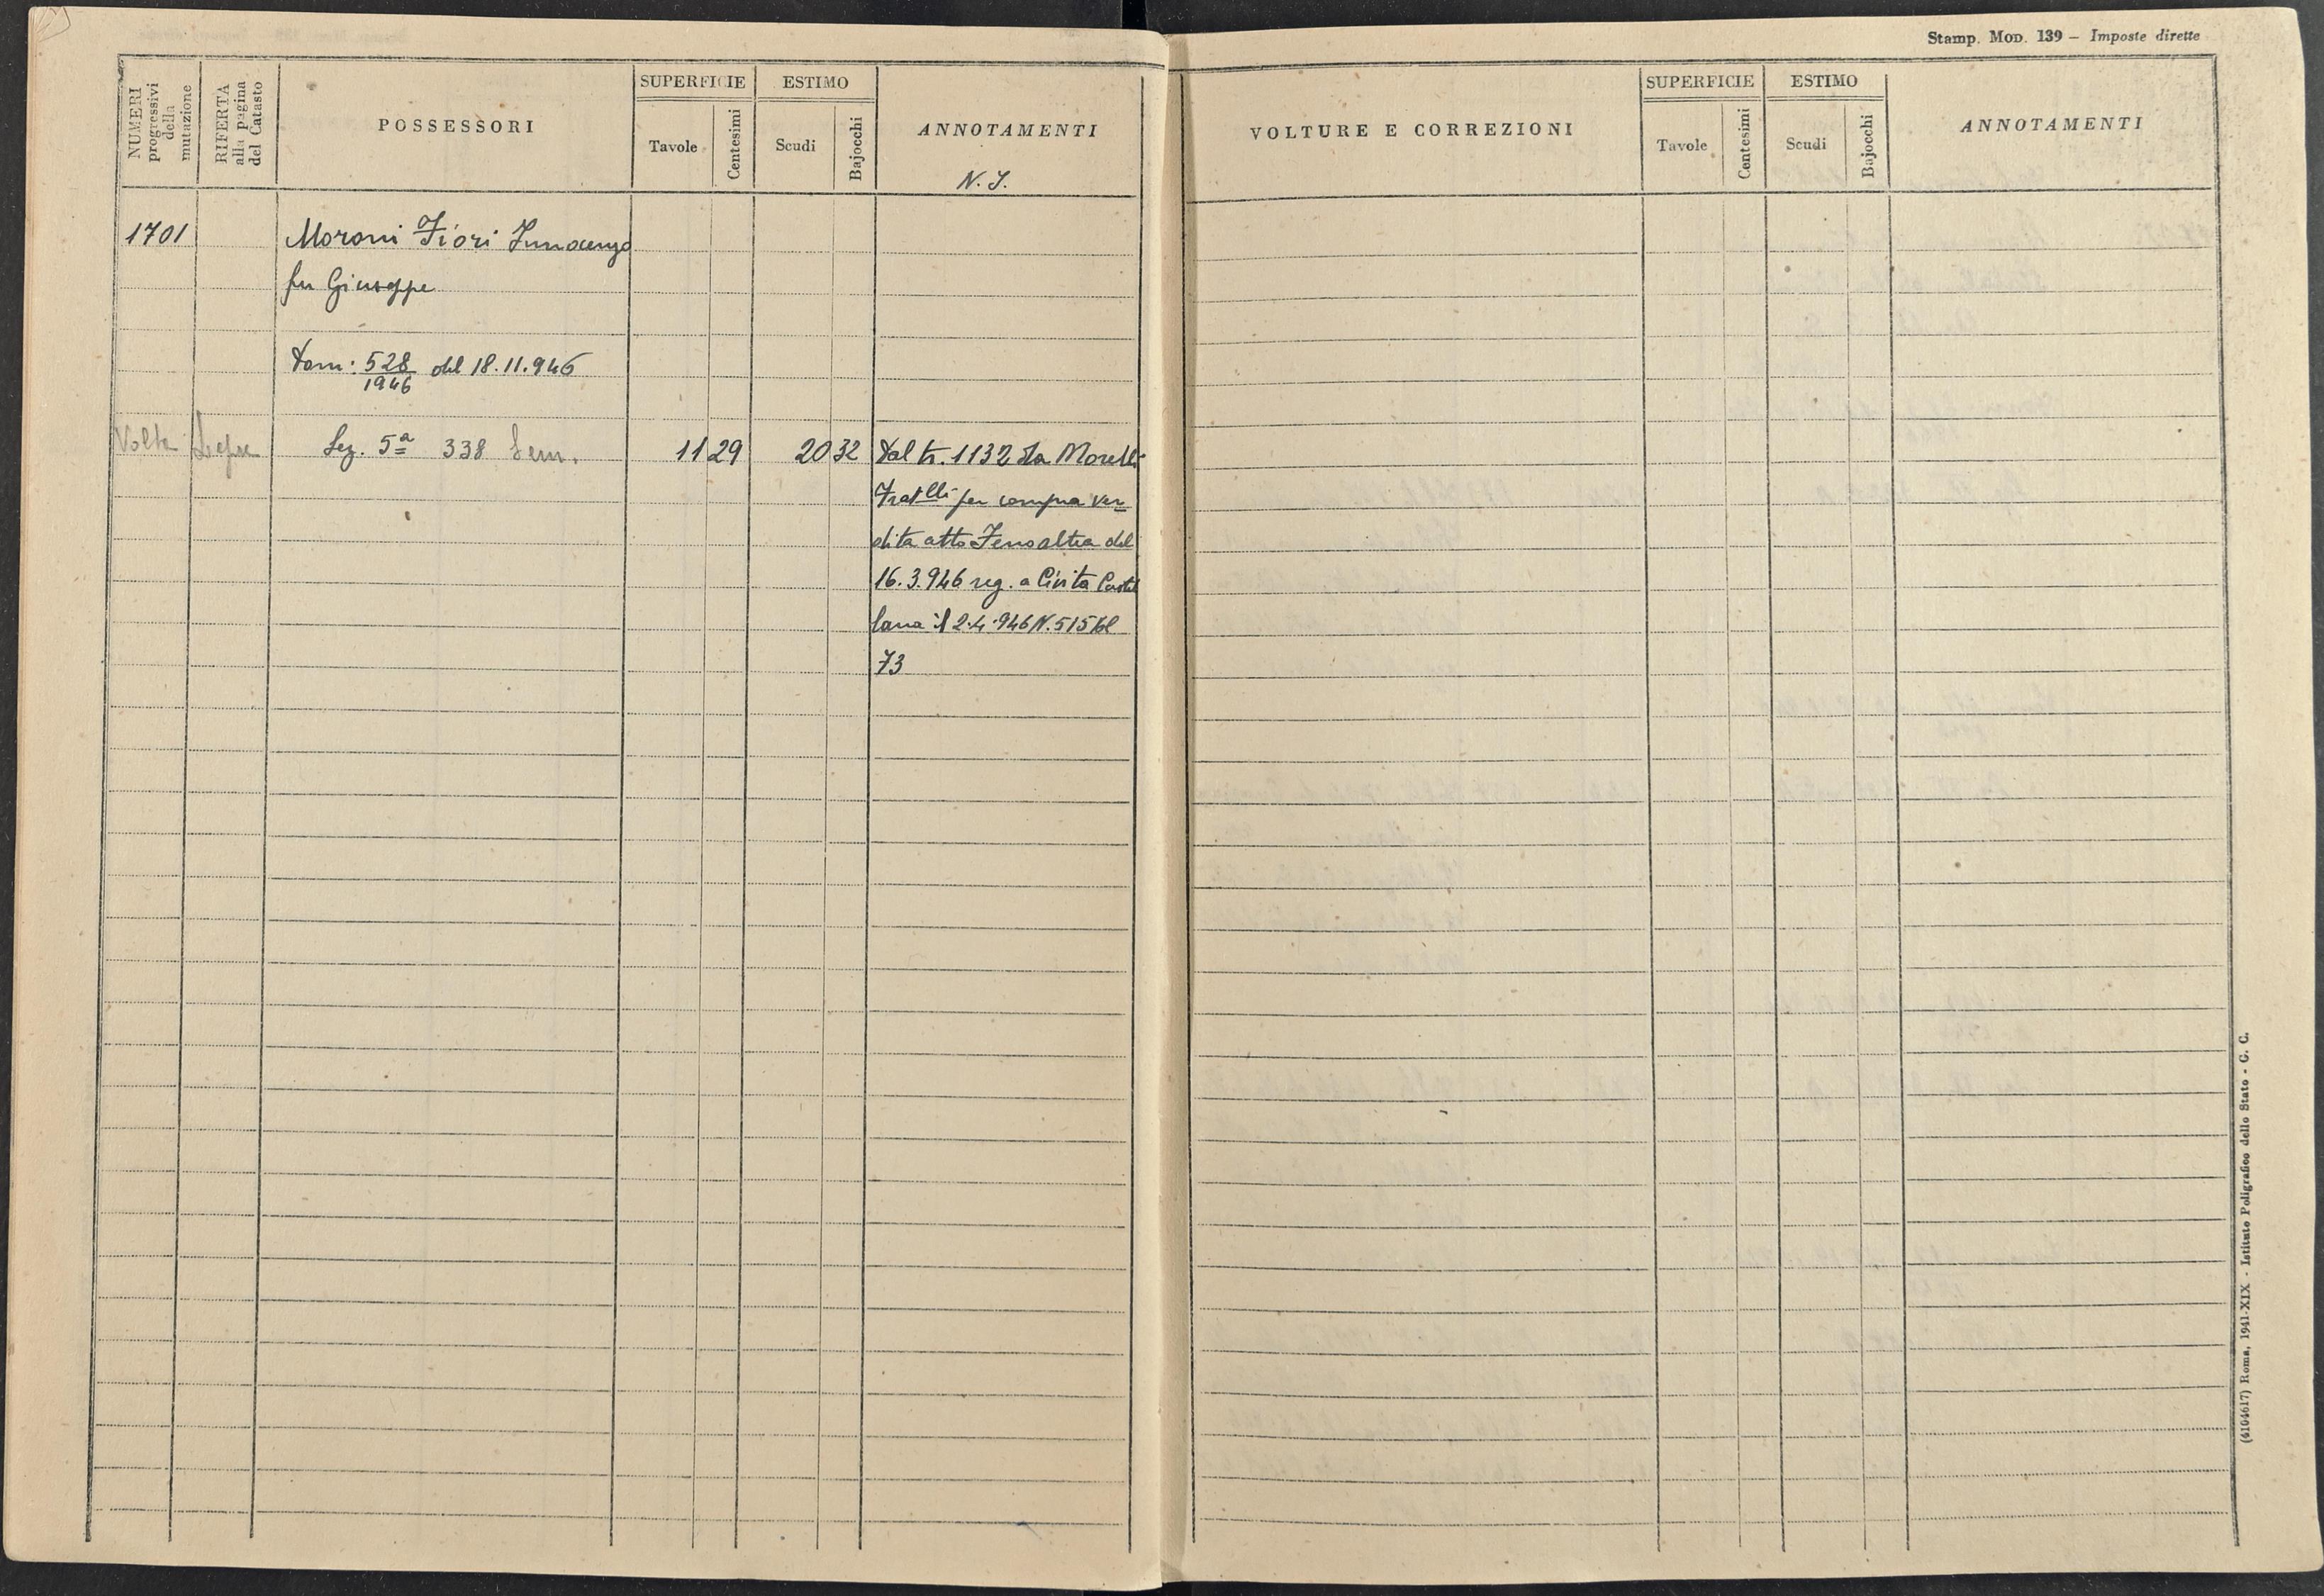 Stamp. Mod. 139 — Imposte dirette
NUMERI progressivi della mutazione
RIFERTA alla pagina del Catasto
POSSESSORI
SUPERFICIE
Tavole
Centesimi
ESTIMO
Scudi
Bajocchi
ANNOTAMENTI
N. S.
1701
Moroni Fiori Innocenzo
fu Giuseppe
Dom: 528/1946 del 18.11.946
Volta Lepre
Sez. 5ª 338 Sem.
11 29
20 32
Dal tr. 1132 da Morelli
Frat.lli per compra ven-
dita atto Fenoaltea del
16.3.946 reg. a Civita Castel
lana il 2.4.946 N. 515 Vol
73
VOLTURE E CORREZIONI
SUPERFICIE
Tavole
Centesimi
ESTIMO
Scudi
Bajocchi
ANNOTAMENTI
(4104617) Roma, 1941-XIX - Istituto Poligrafico dello Stato - G. C.